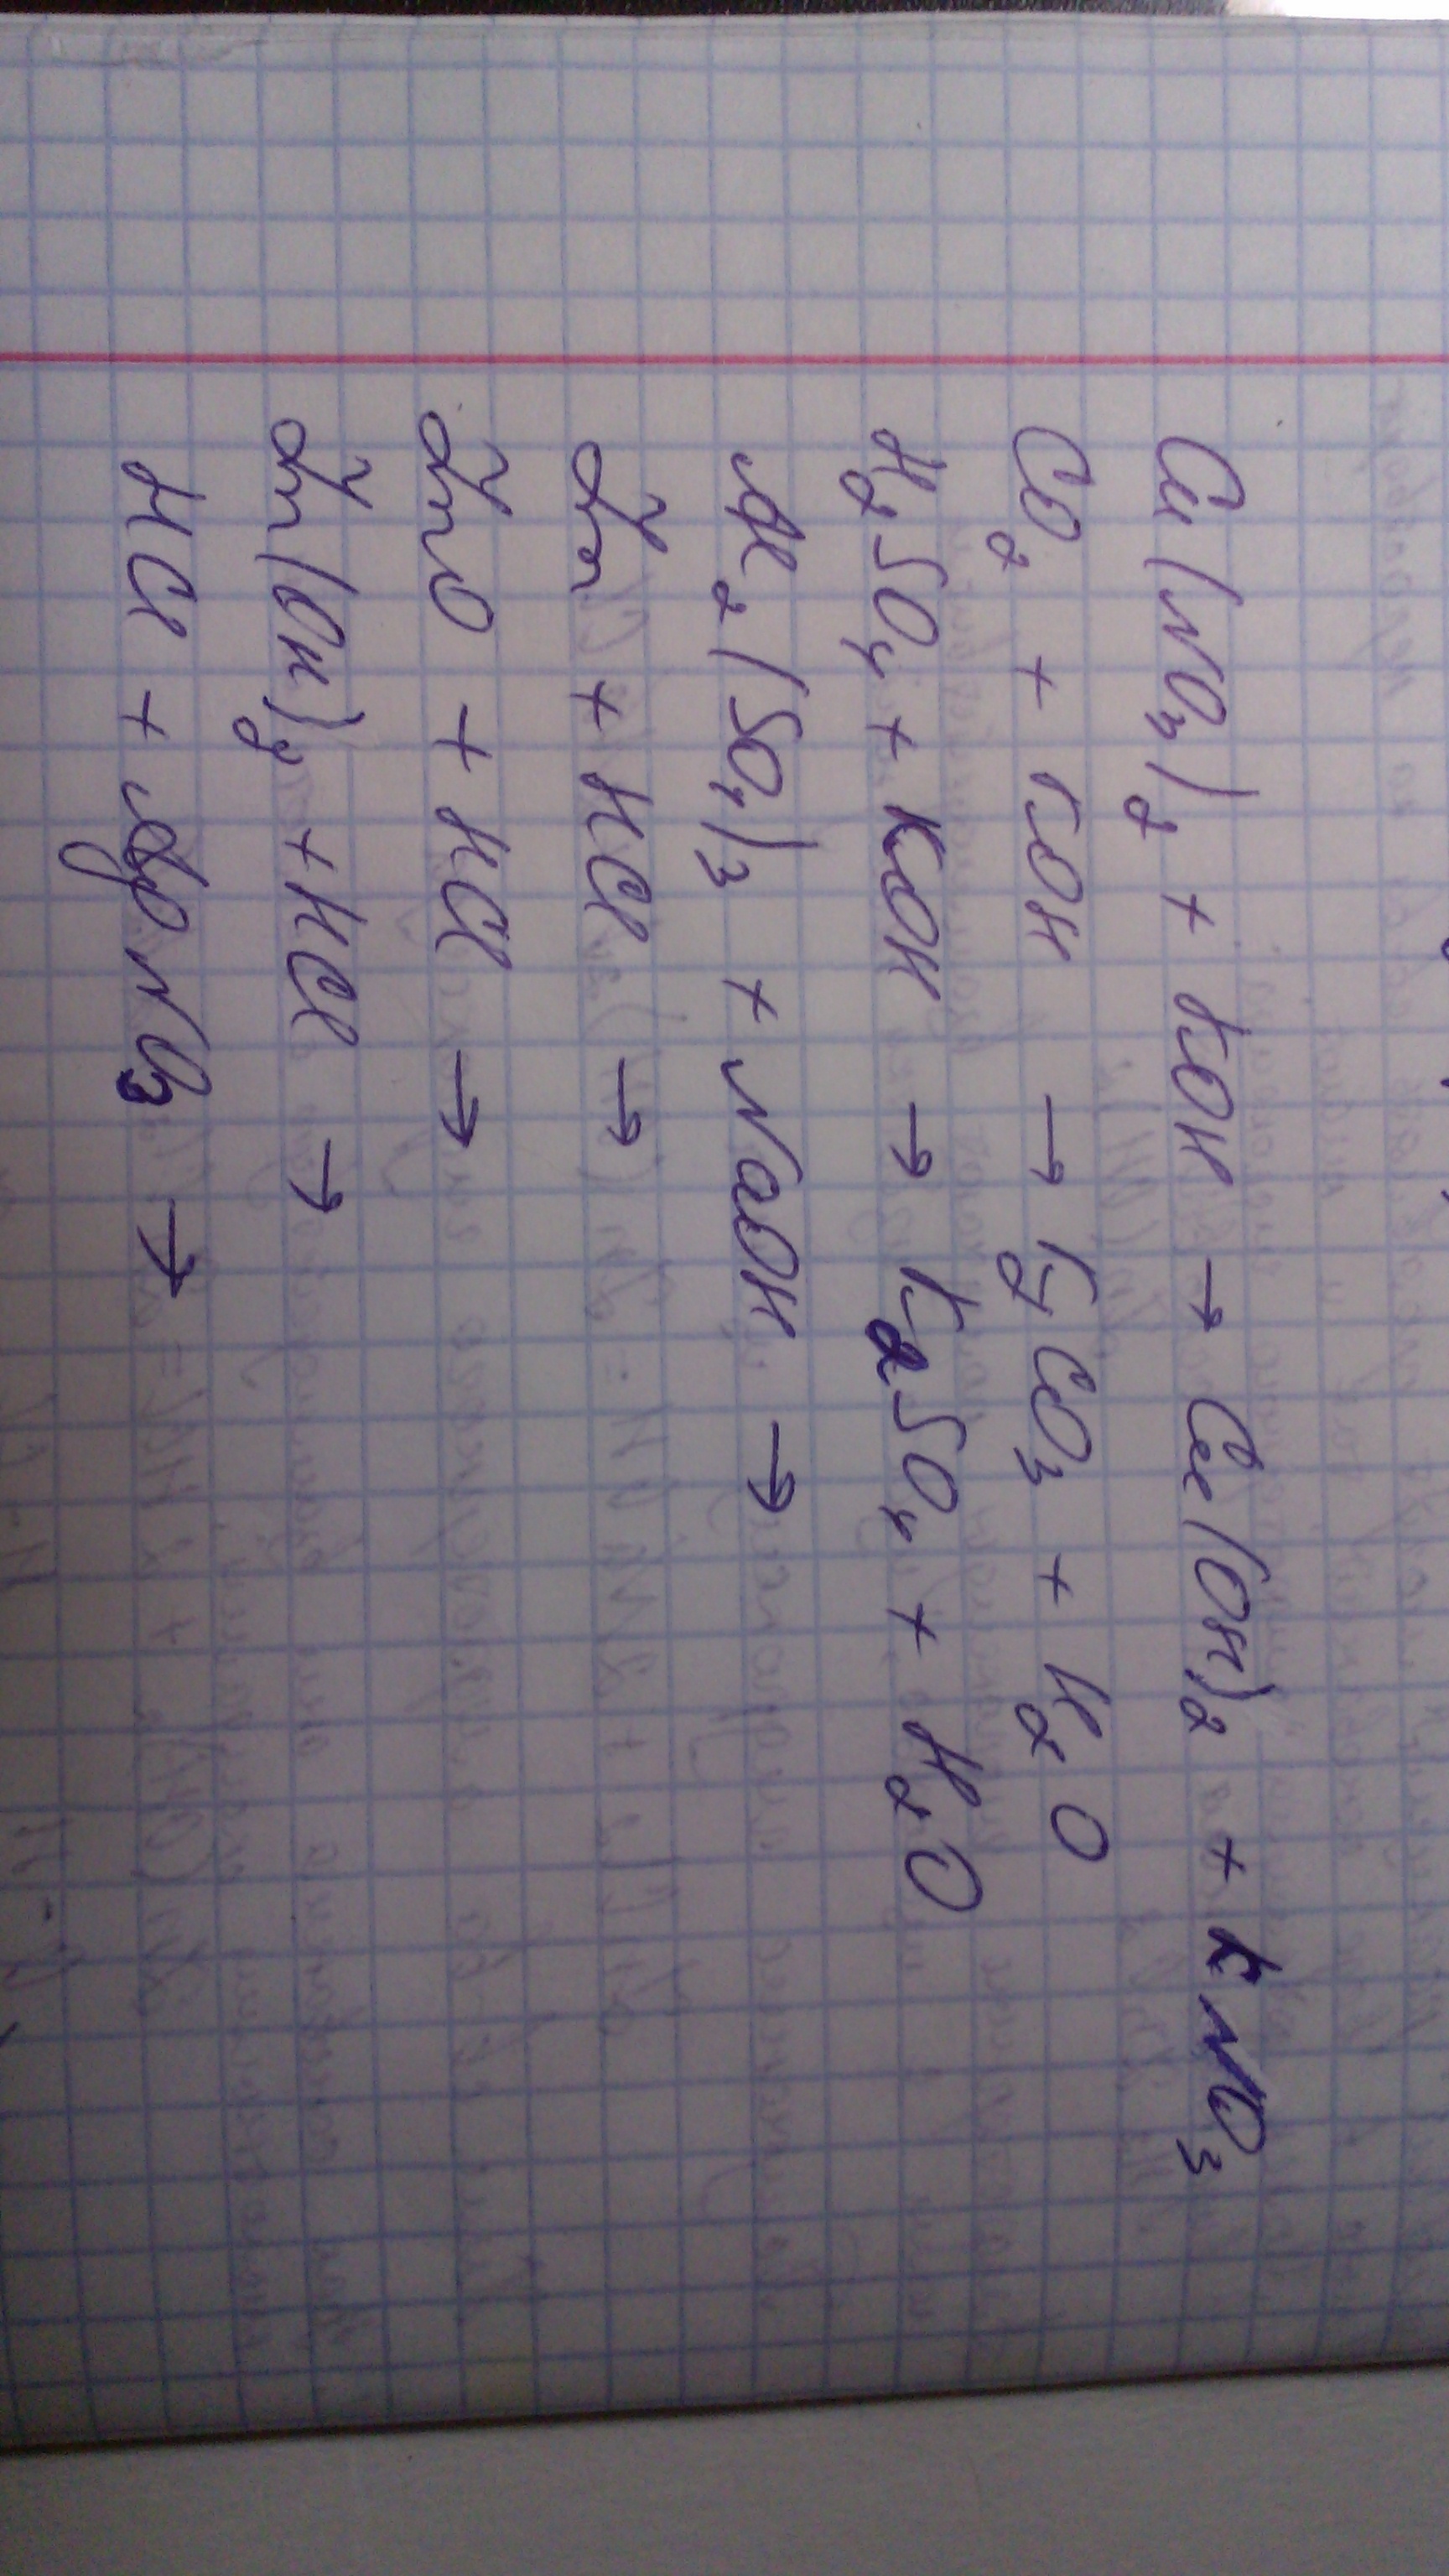 Cu(NO₃)₂ + KOH → Cu(OH)₂ + KNO₃
CO₂ + KOH → K₂CO₃ + H₂O
H₂SO₄ + KOH → K₂SO₄ + H₂O
Al₂(SO₄)₃ + NaOH →
Zn + HCl →
ZnO + HCl →
Zn(OH)₂ + HCl →
HCl + AgNO₃ →